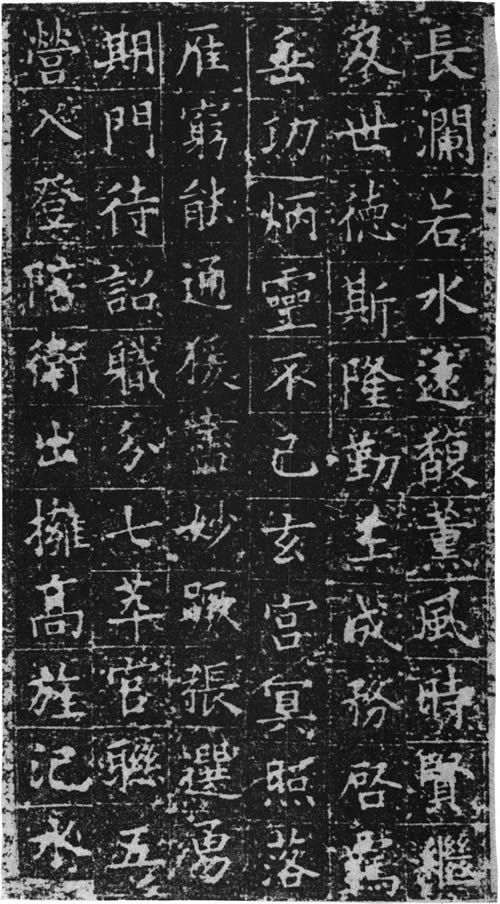 長瀾若水遠馥薰風時賢繼
及世德斯隆勤王成務啓
垂功炳靈不已玄宮冥照落
雁窮能通猨盡妙蹶張選勇
期門待詔職分七萃官聯五
營入登陪衛出擁高旌氾水